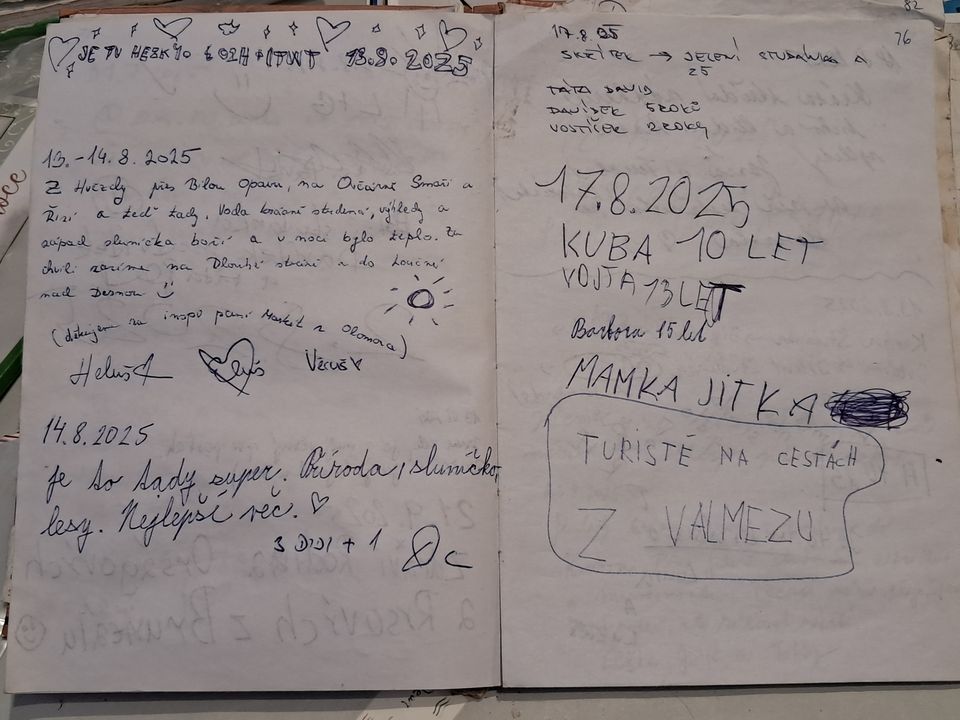 JE TU HEZKÝ 13.8.2025
13.-14.8.2025
Z Hvězdy přes Bílou Opavu, na Ovčárně Smaží a
Řízi a teď tady. Voda krásně studená, výhledy a
západ sluníčka boží a v noci bylo teplo. Za
chvíli razíme na Dlouhé stráně a do Loučné
nad Desnou
(děkujeme za inspo paní Market z Olomouce)
Heluš
Věruš
14.8.2025
je to tady super. Příroda, sluníčko,
lesy. Nejlepší věc. ♡
3 DIDI + 1
82
76
17.8.25
SKŘÍTEK → JELENÍ STUDÁNKA A
ZS
TÁTA DAVID
DAVÍDEK 5 ROKŮ
VOSTÍČEK 2 ROKY
17.8.2025
KUBA 10 LET
VOJTA 13 LET
Barbora 15 let
MAMKA JITKA
TURISTÉ NA CESTÁCH
Z VALMEZU